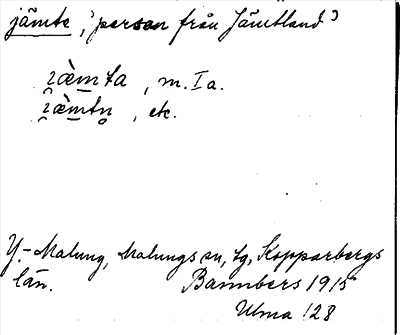 jämte, 'person från Jämtland'
i̯æ̀m̲ta, m. Ia.
i̯æ̀m̲tn̥, etc.
Y.-Malung, Malungs sn, lg, Kopparbergs
län. Bannbers 1915
Ulma 128